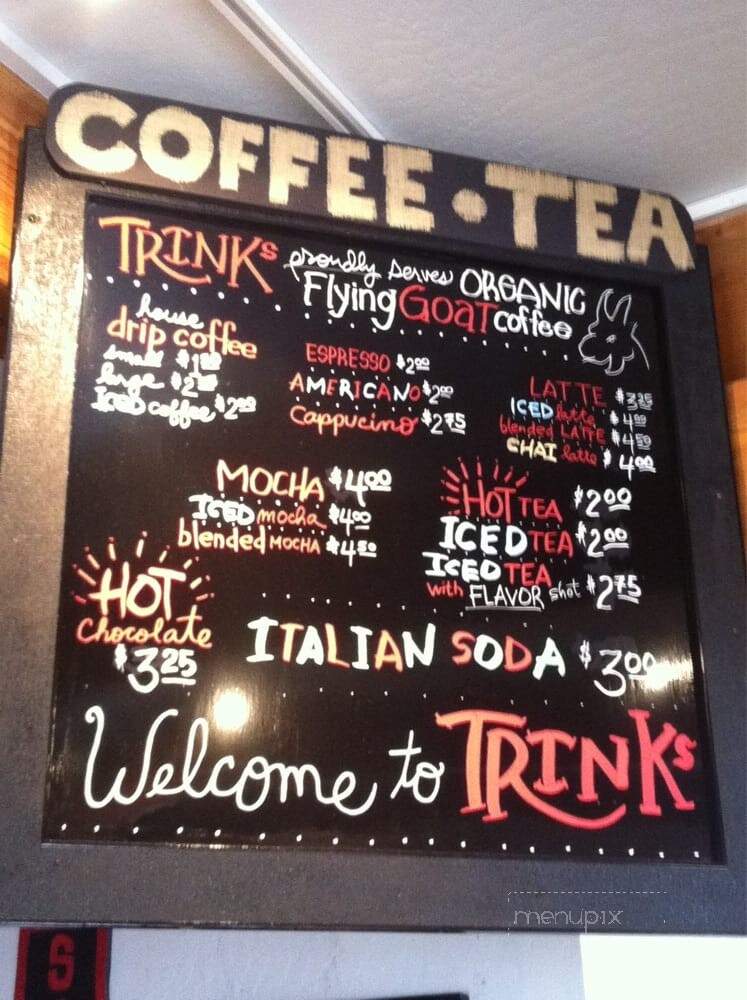 COFFEE • TEA
TRINKs proudly serves ORGANIC
Flying GOAT coffee
house
drip coffee
small
large
ICED coffee $2.00
ESPRESSO $2.00
AMERICANO $2.00
Cappucino $2.75
LATTE $3.25
ICED latte $4.00
blended LATTE $4.50
CHAI latte $4.00
MOCHA $4.00
ICED mocha $4.00
blended MOCHA $4.50
HOT TEA $2.00
ICED TEA $2.00
ICED TEA
with FLAVOR shot $2.75
HOT
Chocolate
$3.25
ITALIAN SODA $3.00
Welcome to TRINKs
S
menupix